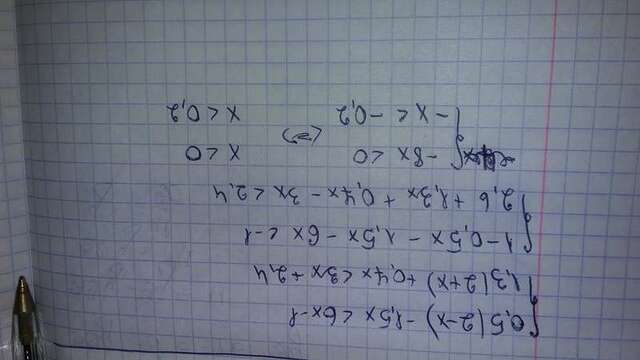 { 0,5(2-x) - 1,5x < 6x-1
1,3(2+x) + 0,4x < 3x + 2,4
{ 1 - 0,5x - 1,5x - 6x < -1
2,6 + 1,3x + 0,4x - 3x < 2,4
{ -8x < 0 <=> x < 0
-x < -0,2 x < 0,2